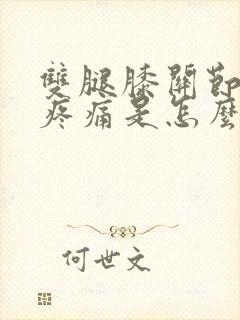 雙腿膝關節
疼痛是怎麼
何世文